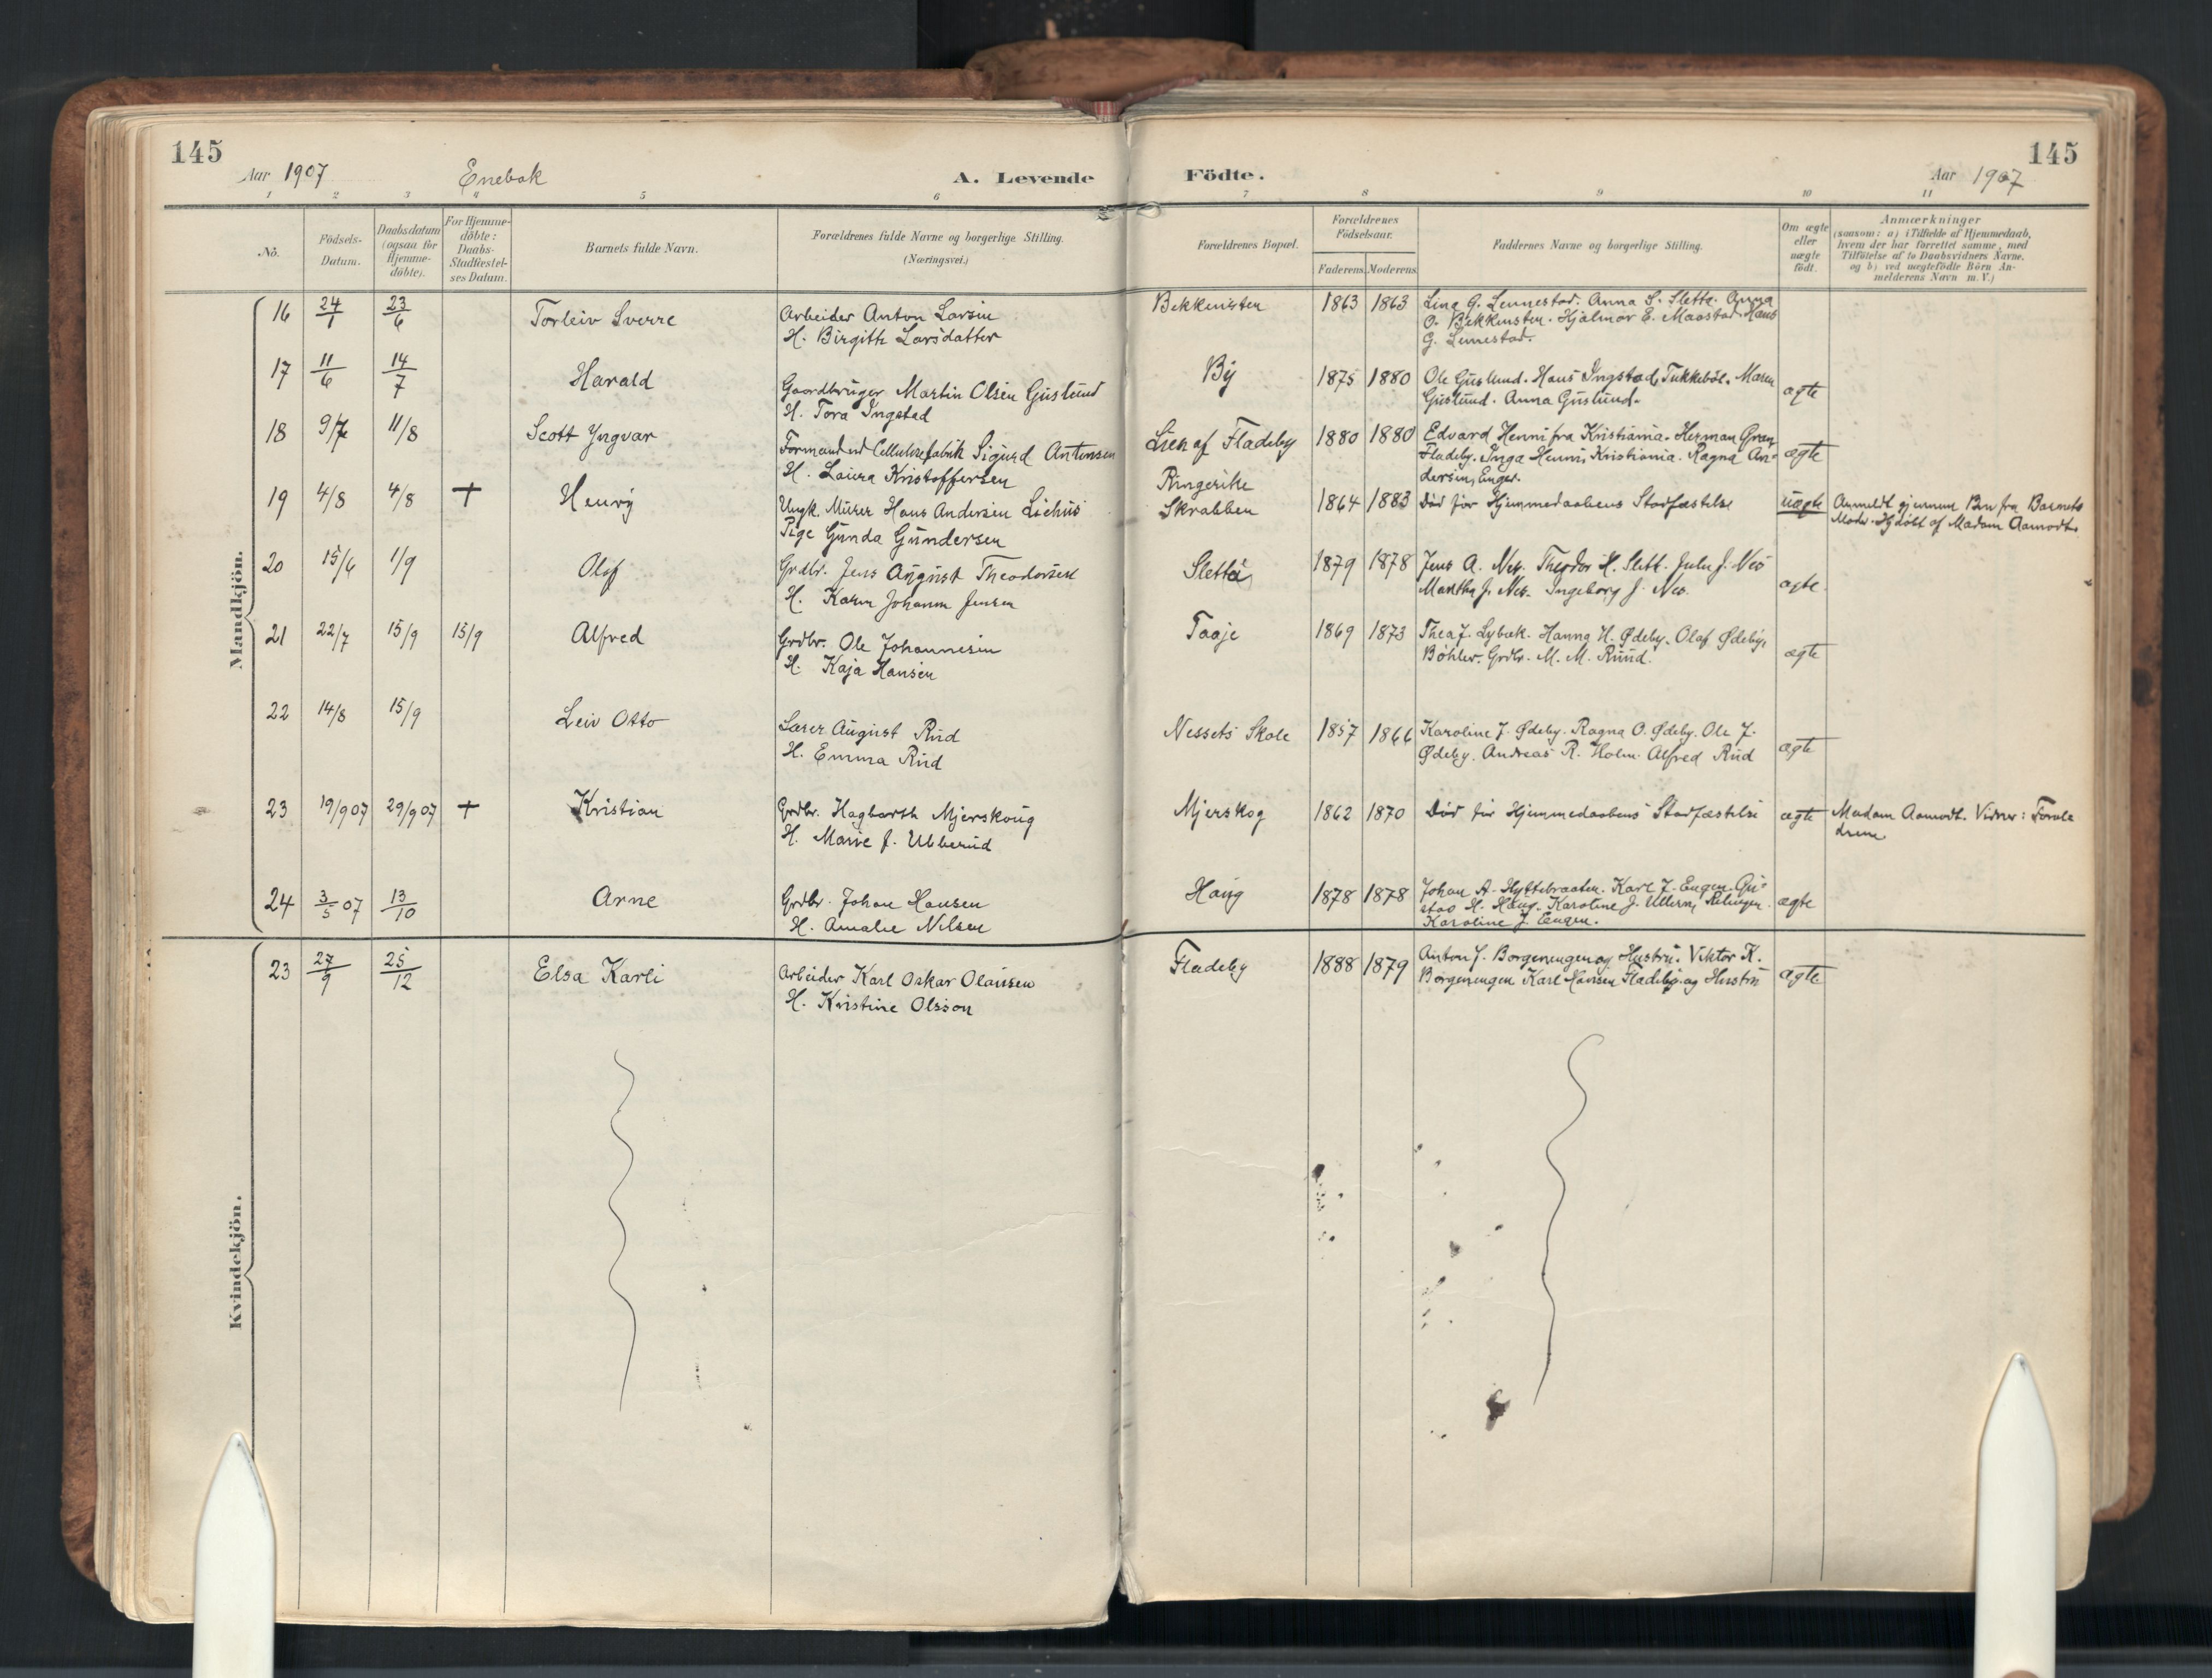 145
Aar 1907
Enebak
A. Levende
Födte.
Aar 1907
145
1 2 3 4 5 6 7 8 9 10 11
No.
Födsels-
Datum.
Daabsdatum
(ogsaa for
Hjemme-
döbte).
For Hjemme-
döbte:
Daabs-
Stadfæstel-
ses Datum.
Barnets fulde Navn.
Forældrenes fulde Navne og borgerlige Stilling.
(Næringsvei.)
Forældrenes Bopæl.
Forældrenes
Födselsaar.
Faderens
Moderens
Faddernes Navne og borgerlige Stilling.
Om ægte
eller
uægte
födt.
Anmærkninger
(saasom: a) i Tilfælde af Hjemmedaab,
hvem der har forrettet samme, med
Tilföielse af to Daabsvidners Navne.
og b) ved uægtefödte Börn An-
melderens Navn m. V.)
Mandkjön.
16 24/1 23/6 Torleiv Sverre
Arbeider Anton Larsen
H. Birgithe Larsdatter
Bekkensten 1863 1863
Lina G. Lennestad. Anna S. Sletta. Anna
O. Bekkensten. Hjalmar E. Maastad. Hans
G. Lennestad.
17 11/6 14/7 Harald
Gaardbruger Martin Olsen Guslund
H. Tora Ingstad
By 1875 1880
Ole Guslund. Hans Ingstad, Tukkeböl. Maren
Guslund. Anna Guslund.
ægte
18 9/7 11/8 Scott Yngvar
Formand ved Cellulosefabrik Sigurd Antonsen
H. Laura Kristoffersen
Lien af Fladeby 1880 1880
Edvard Henni fra Kristiania. Herman Gran
Fladeby. Inga Henni, Kristiania. Ragna An-
dersen, Enger.
ægte
19 4/8 4/8 + Henry
Ungk. Murer Hans Andersen
Pige Gunda Gundersen
Ringerike
Skrabben 1864 1883
Död för Hjemmedaabens Stadfæstelse
uægte
Anmeldt gjennem Brev fra Barnets
Moder. Hjdöbt af Madam Aamodt.
20 15/6 1/9 Olaf
Grdbr. Jens August Theodorsen
H. Karen Johanne Jensen
Sletta 1879 1878
Jens A. Nes. Theodor H. Slett. Julie J. Nes
Martha J. Nes. Ingeborg J. Nes.
ægte.
21 22/7 15/9 15/9 Alfred
Grdbr. Ole Johannesen
H. Kaja Hansen
Taaje 1869 1873
Thea J. Lybæk. Hanna H. Ødeby. Olaf Ødeby,
Böhler. Grdbr. M. M. Ruud.
ægte
22 14/8 15/9 Leiv Otto
Lærer August Rud
H. Emma Rud
Nessets Skole 1857 1866
Karoline J. Ødeby. Ragna O. Ødeby. Ole J.
Ødeby. Andreas R. Holm. Alfred Rud
ægte
23 19/9 07 29/9 07 + Kristian
Grdbr. Hagbarth Mjerskoug
H. Marie J. Ubberud
Mjerskog 1862 1870
Död för Hjemmedaabens Stadfæstelse
ægte
Madam Aamodt. Vidner: Foræl
drene
24 3/5 07 13/10 Arne
Grdbr. Johan Hansen
H. Amalie Nilsen
Haug 1878 1878
Johan A. Hyttebraaten. Karl J. Engen. Gu-
stav H. Haug. Karoline J. Ullern,
Karoline J. Engen.
ægte
Kvindekjön.
23 27/9 25/12 Elsa Karli
Arbeider Karl Oskar Olausen
H. Kristine Olsson
Fladeby 1888 1879
Anton J. Borgenengen og Hustru. Viktor K.
Borgenengen Karl Hansen Fladeby. og Hustru
ægte